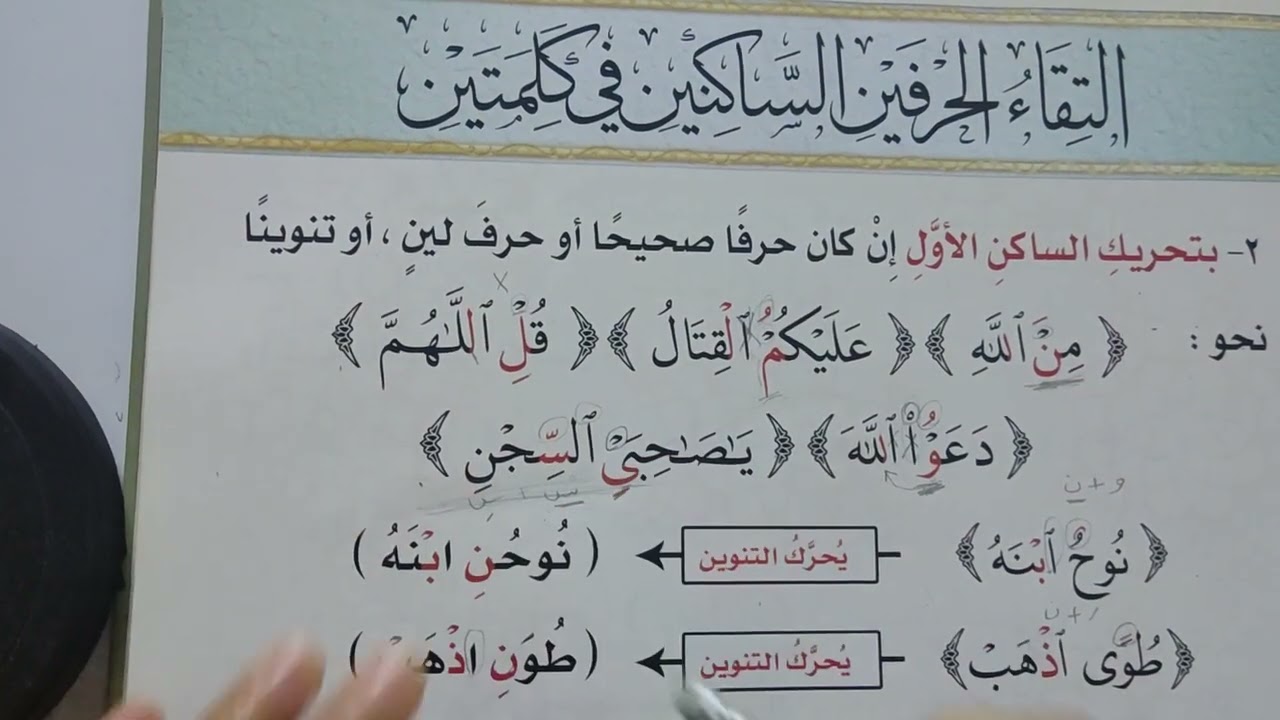 التِقَاءُ الحَرْفَيْنِ السَّاكِنَيْنِ فِي كَلِمَتَيْنِ
٢- بتحريكِ الساكنِ الأوَّلِ إنْ كان حرفًا صحيحًا أو حرفَ لينٍ ، أو تنوينًا
نحو : ﴿ مِنَ ٱللَّهِ ﴾ ﴿ عَلَيْكُمُ ٱلْقِتَالُ ﴾ ﴿ قُلِ ٱللَّهُمَّ ﴾
﴿ دَعَوُا۟ ٱللَّهَ ﴾ ﴿ يَـٰصَـٰحِبَيِ ٱلسِّجْنِ ﴾
و + ن
س + س
﴿ نُوحٌ ٱبْنَهُ ﴾ يُحرَّكُ التنوين ( نُوحُنِ ابْنَهُ )
﴿ طُوًى ٱذْهَبْ ﴾ يُحرَّكُ التنوين ( طُوَنِ اذْهَبْ )